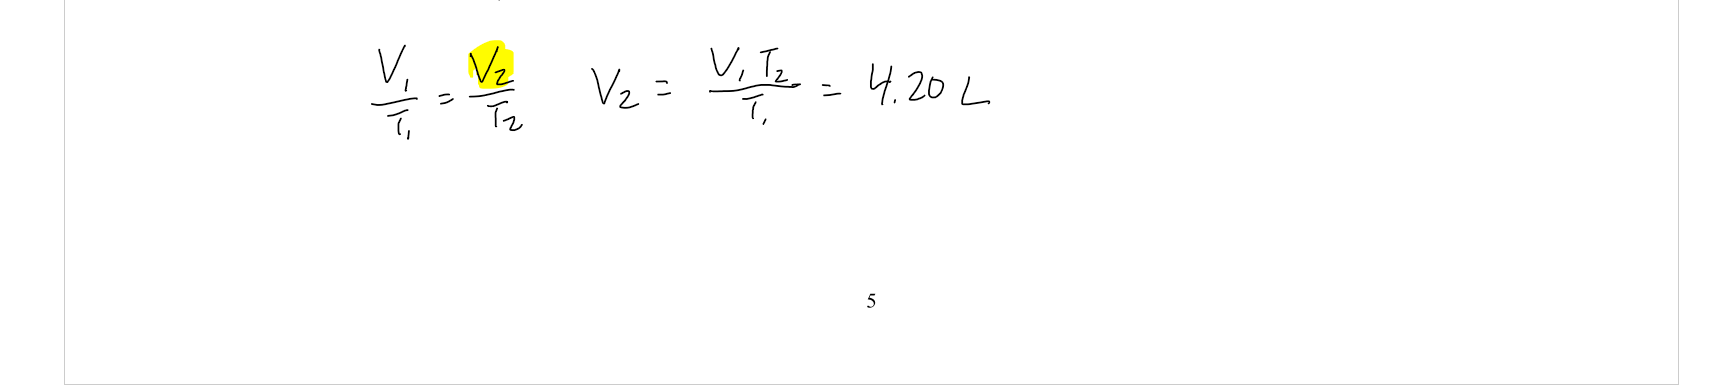 V₁/T₁ = V₂/T₂ V₂ = V₁T₂/T₁ = 4.20 L
5